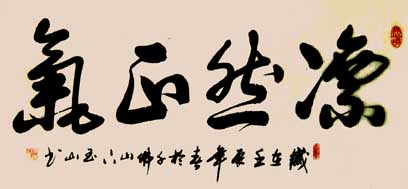 凛然正氣
歲在壬辰年春於千佛山下玉山书